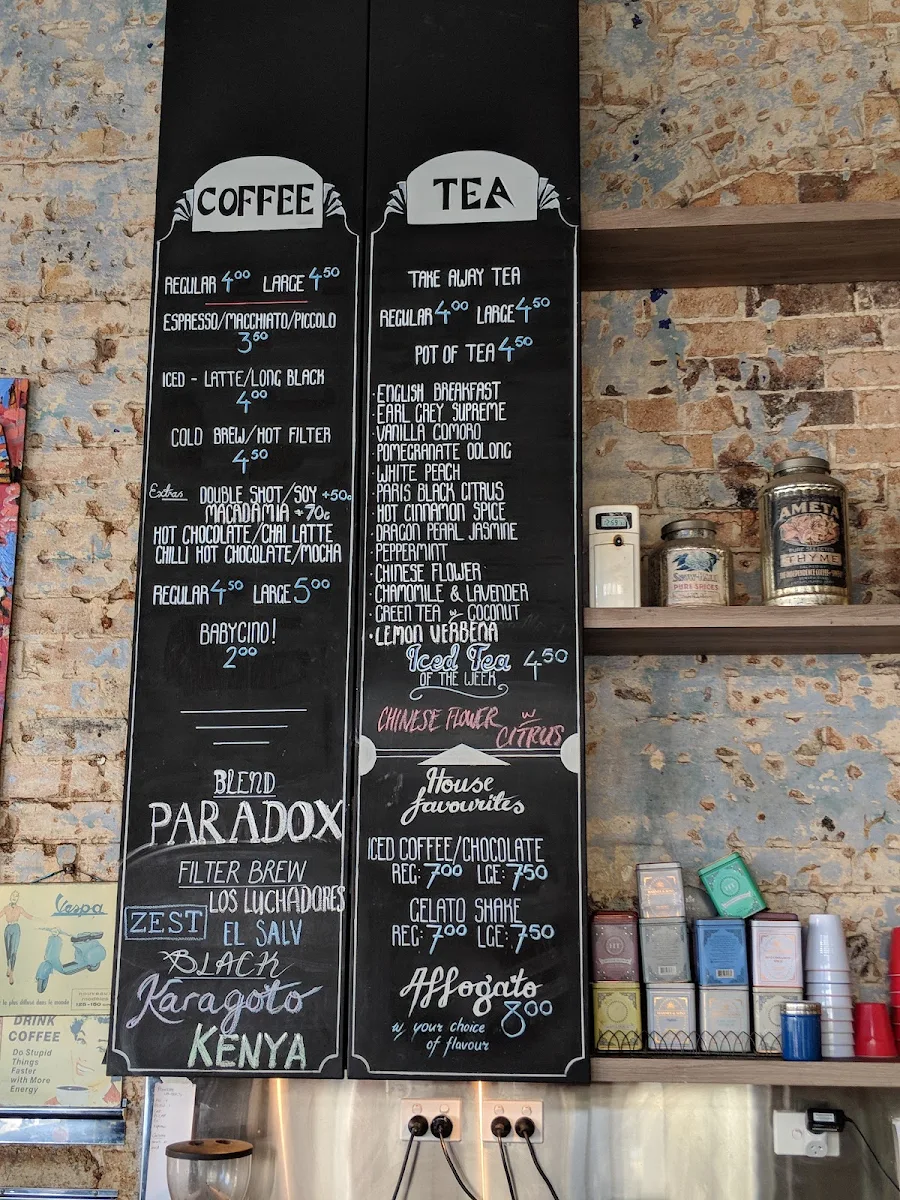 COFFEE
REGULAR 4.00 LARGE 4.50
ESPRESSO/MACCHIATO/PICCOLO
3.50
ICED - LATTE/LONG BLACK
4.00
COLD BREW/HOT FILTER
4.50
Extras DOUBLE SHOT/SOY +50c
MACADAMIA +70c
HOT CHOCOLATE/CHAI LATTE
CHILLI HOT CHOCOLATE/MOCHA
REGULAR 4.50 LARGE 5.00
BABYCINO!
2.00
BLEND
PARADOX
FILTER BREW
LOS LUCHADORES
ZEST EL SALV
BLACK
Karagoto
KENYA
TEA
TAKE AWAY TEA
REGULAR 4.00 LARGE 4.50
POT OF TEA 4.50
· ENGLISH BREAKFAST
· EARL GREY SUPREME
· VANILLA COMORO
· POMEGRANATE OOLONG
· WHITE PEACH
· PARIS BLACK CITRUS
· HOT CINNAMON SPICE
· DRAGON PEARL JASMINE
· PEPPERMINT
· CHINESE FLOWER
· CHAMOMILE & LAVENDER
· GREEN TEA w COCONUT
· LEMON VERBENA
Iced Tea 4.50
OF THE WEEK
CHINESE FLOWER w
CITRUS
House
favourites
ICED COFFEE/CHOCOLATE
REG: 7.00 LGE: 7.50
GELATO SHAKE
REG: 7.00 LGE: 7.50
Affogato
8.00
w/ your choice
of flavour
AMETA
THYME
PURE SPICES
Vespa
DRINK
COFFEE
Do Stupid
Things
Faster
with More
Energy